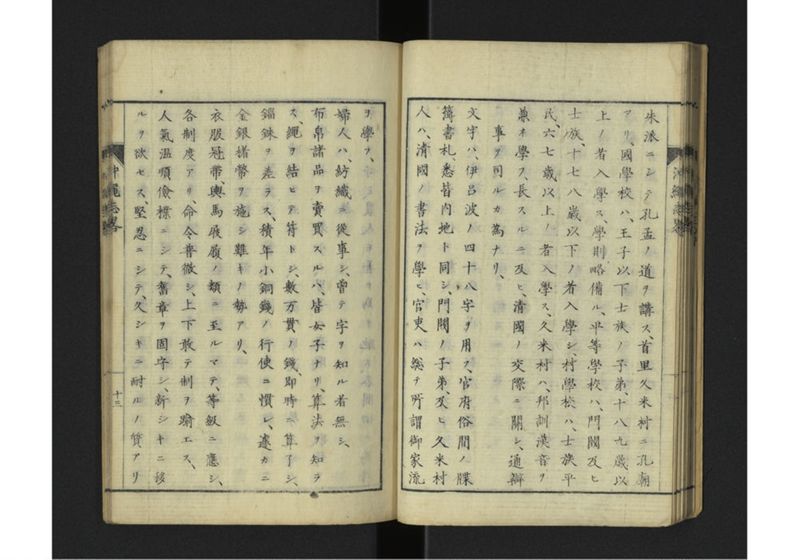 朱派ニシテ孔孟ノ道ヲ講ス、首里久米村ニ孔朝
アリ、國學校ハ、王子以下士族ノ子弟、十八九歳以
上ノ者入學ス、學則略備ル、平等學校ハ、門閥及ヒ
士族、十七八歳以下ノ者入學シ、村學校ハ、士族平
民、六七歳以上ノ者入學ス、久米村ハ、邦訓漢音ヲ
兼ネ學フ、長スルニ及ヒ、清國ノ交際ニ關シ、通辯
事ヲ司ルカ為ナリ、
文字ハ、伊呂波ノ四十八字ヲ用フ、官府俗間ノ牒
簿書札悉皆内地ト同シ、門閥ノ子弟、及ヒ久米村
人ハ、清國ノ書法ヲ學ヒ、官吏ハ總テ所謂御家流
沖繩志畧
ヲ學フ、
婦人ハ、紡織ニ從事シ、曾テ字ヲ知ル者無シ、
布帛諸品ヲ賣買スルハ、皆女子ナリ、算法ヲ知ラ
ス、繩ヲ結ヒテ符トシ、数万貫ノ錢、即時ニ算了シ、
錙銖ヲ差ラス、積年小銅錢ノ行使ニ慣レ、遽カニ
金銀楮幣ヲ施シ難キノ勢アリ、
衣服冠帶輿馬屐履ノ類ニ至ルマテ、等級ニ應シ、
各制度アリ、命令普徹シ、上下敢テ制ヲ踰エス、
人氣温順儉樸ニシテ、舊章ヲ固守シ、新シキニ移
ルヲ欲セス、堅忍ニシテ、久シキニ耐ルノ質アリ
沖繩志畧
十三